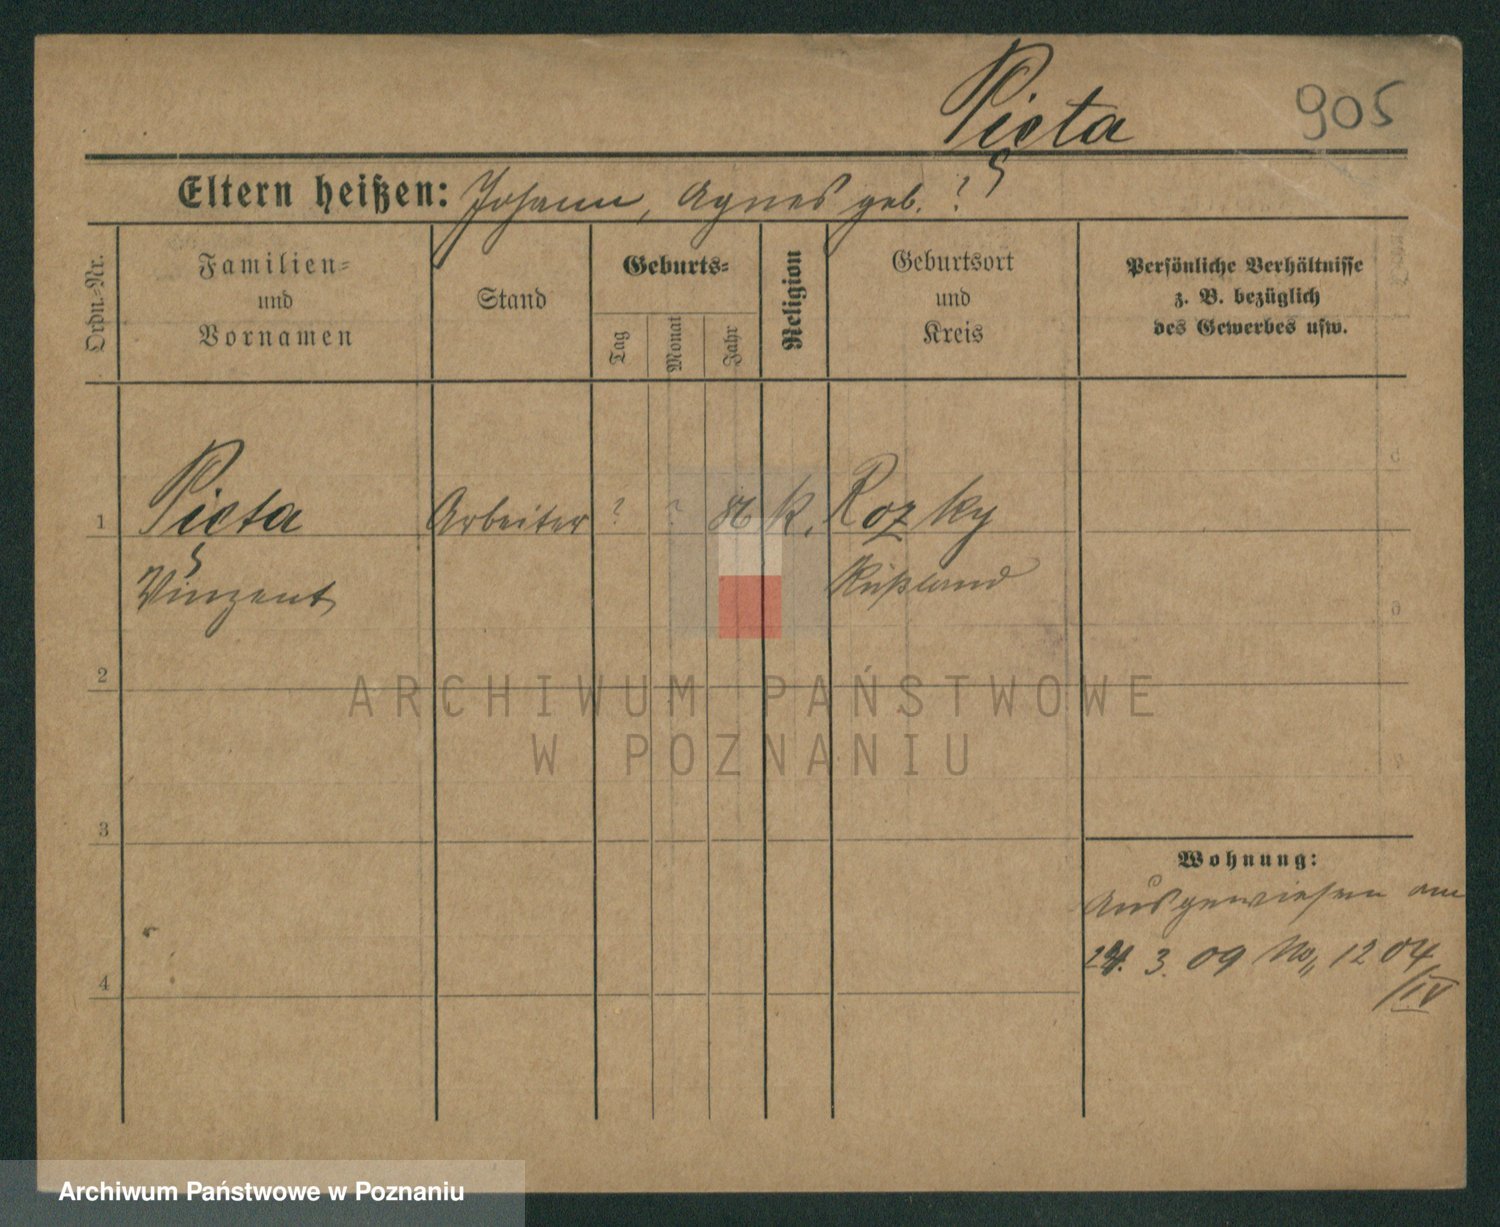 Pięta 905
Eltern heißen: Johann, Agnes geb. ?
Ordn.-Nr.
Familien-
und
Vornamen
Stand
Geburts-
Tag
Monat
Jahr
Religion
Geburtsort
und
Kreis
Persönliche Verhältnisse
z. B. bezüglich
des Gewerbes usw.
1 Pięta Arbeiter ? ? 86 k. Rozky
Vinzent Rußland
2
ARCHIWUM PAŃSTWOWE
W POZNANIU
3
Wohnung:
Ausgewiesen am
24. 3. 09 No 1204
/IV
4
Archiwum Państwowe w Poznaniu